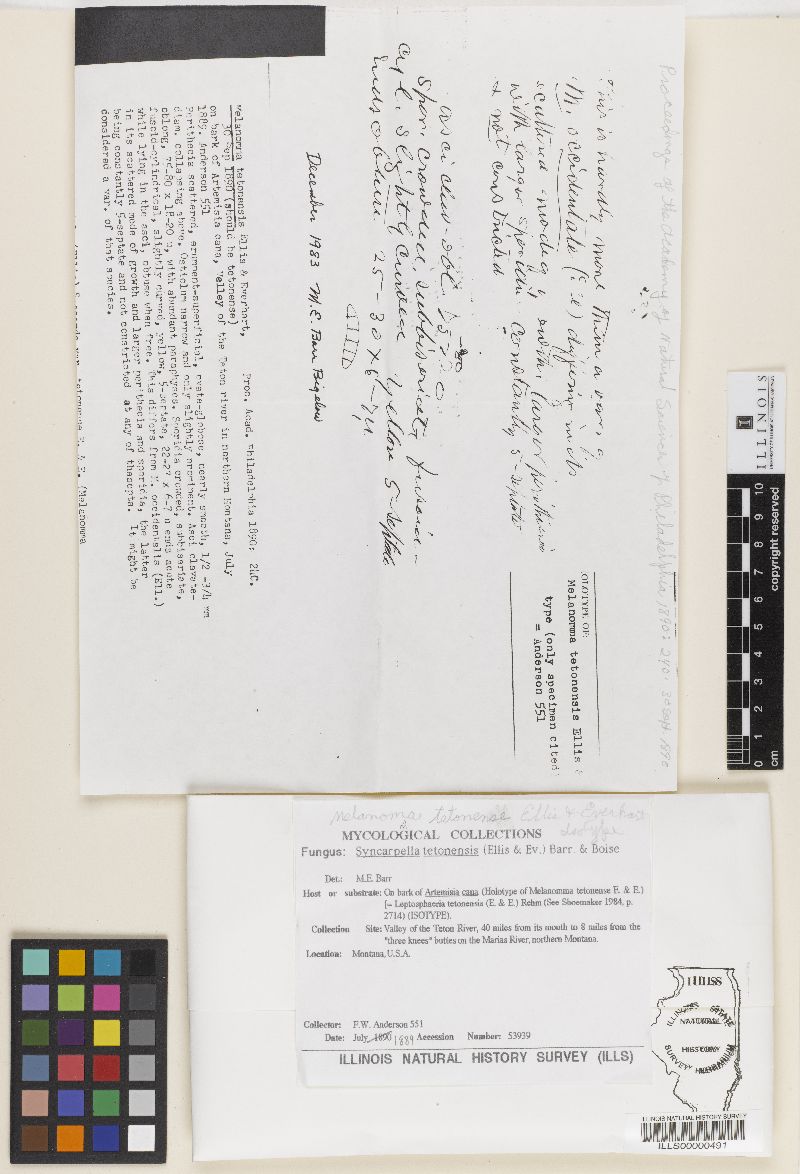 Proceedings of the Academy of Natural Sciences of Philadelphia 1890: 240. 30 Sept 1890
This is hardly more than a var. of
M. occidentale (E &) differing in its
scattered mode of g with larger perithecia
with larger sporidia constantly 5-septate
& not constricted
OLOTYPE OF:
Melanomma tetonensis Ellis &
type (only specimen cited
= Anderson 551
asci clav-obl. 75-80
Spor. crowded, subbiseriate, fusoid-
cyl., slightly curved yellow 5-septate
ends obtuse 25-30 x 6-7µ
December 1983 M.E. Barr Bigelow
Melanomma tetonensis Ellis & Everhart, Proc. Acad. Philadelphia 1890: 240.
30 Sep 1890 (should be tetonense)
on bark of Artemisia cana, Valley of the Teton river in northern Montana, July
1889. Anderson 551
Perithecia scattered, erumpent-superficial, ovate-globose, nearly smooth, 1/2 -3/4 mm
diam. collapsing above. Ostiolum narrow and only slightly prominent. Asci clavate-
oblong, 75-80 x 18-20 u, with abundant paraphyses. Sporidia crowded, subbiseriate,
fusoid-cylindrical, slightly curved, yellow, 5-septate, 22-27 x 6-7 u ends acute
while lying in the asci, obtuse when free. This differs from M. occidentalis (Ell.)
in its scattered mode of growth and larger perithecia and sporidia, the latter
being constantly 5-septate and not constricted at any of thesepta. It might be
donsidered a var. of that species.
ILLINOIS
copyright reserved
0 1 2 3 4 5 6 7 8 9 10
cm
Melanomma tetonense Ellis & Everhart
isotype
MYCOLOGICAL COLLECTIONS
Fungus: Syncarpella tetonensis (Ellis & Ev.) Barr. & Boise
Det.: M.E. Barr
Host or substrate: On bark of Artemisia cana (Holotype of Melanomma tetonense E. & E.)
[= Leptosphaeria tetonensis (E. & E.) Rehm (See Shoemaker 1984, p.
2714) (ISOTYPE).
Collection Site: Valley of the Teton River, 40 miles from its mouth to 8 miles from the
"three knees" buttes on the Marias River, northern Montana.
Location: Montana, U.S.A.
Collector: F.W. Anderson 551
Date: July, 1890 1889 Accession Number: 53939
ILLINOIS NATURAL HISTORY SURVEY (ILLS)
ILLS
ILLINOIS STATE
NATURAL
HISTORY
SURVEY HERBARIUM
ILLINOIS NATURAL HISTORY SURVEY
ILLS00000491